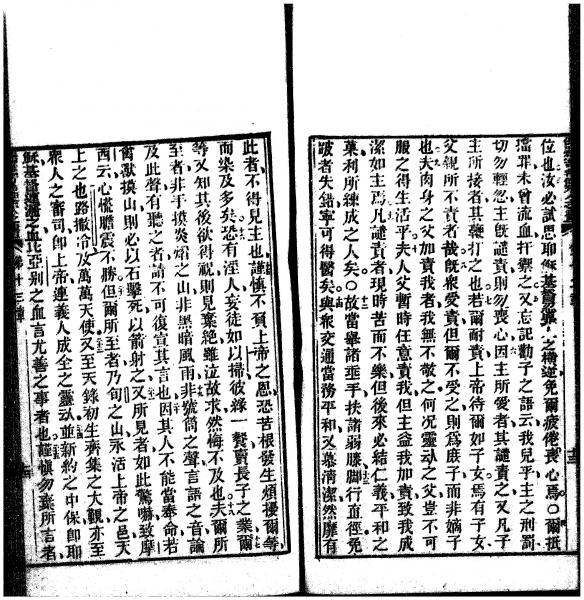 位也汝必試思耶穌基之悖逆免爾疲倦喪心焉○爾抵
搖罪未嘗流血抗禦之又忘記勸子之語云我兒乎主之刑罰
切勿輕忽主既譴責則勿喪心因主所愛者其譴責之又凡子
主所接者其鞭打之也若爾耐責上帝待爾如子女焉有子女
父親所不責者哉既衆受責但爾不受之則爲庶子而非嫡子
也夫肉身之父加責我者我無不敬之何況靈動之父豈不可
服之得生活乎夫人父暫時任意責我但主益我加責致我成
潔如主焉凡譴責者現時苦而不樂但後來必結仁義平和之
菓利所練成之人矣○故當舉諸垂手扶諸弱膝脚行直徑免
跛者失錯寧可得醫矣與衆交通當務平和又慕清潔然靡有
此者不得見主也謹慎不負上帝之恩恐苦根發生煩擾爾等
而染及多矣恐有淫人妄徒如以掃彼緣一餐賣長子之業爾
等又知其後欲得祝則見棄絶雖泣故求然悔不及也夫爾所
至者非手摸炎焰之山非黑暗風雨非號筒之聲言語之音諭
及此聲有聽之者請不可復宣其言也因其人不能當奉命若
禽獸摸山則必以石擊死以箭射之又所見者如此驚嚇致摩
西云心慌膽震不勝但爾所至者乃旬之山永活上帝之邑天
上之也路撒冷及萬萬天使又至天錄初生齊集之大觀亦至
衆人之審司即上帝連義人成全之靈動並新約之中保即耶
穌基督之血比亞别之血言尤善之事者也謹慎勿棄所言者